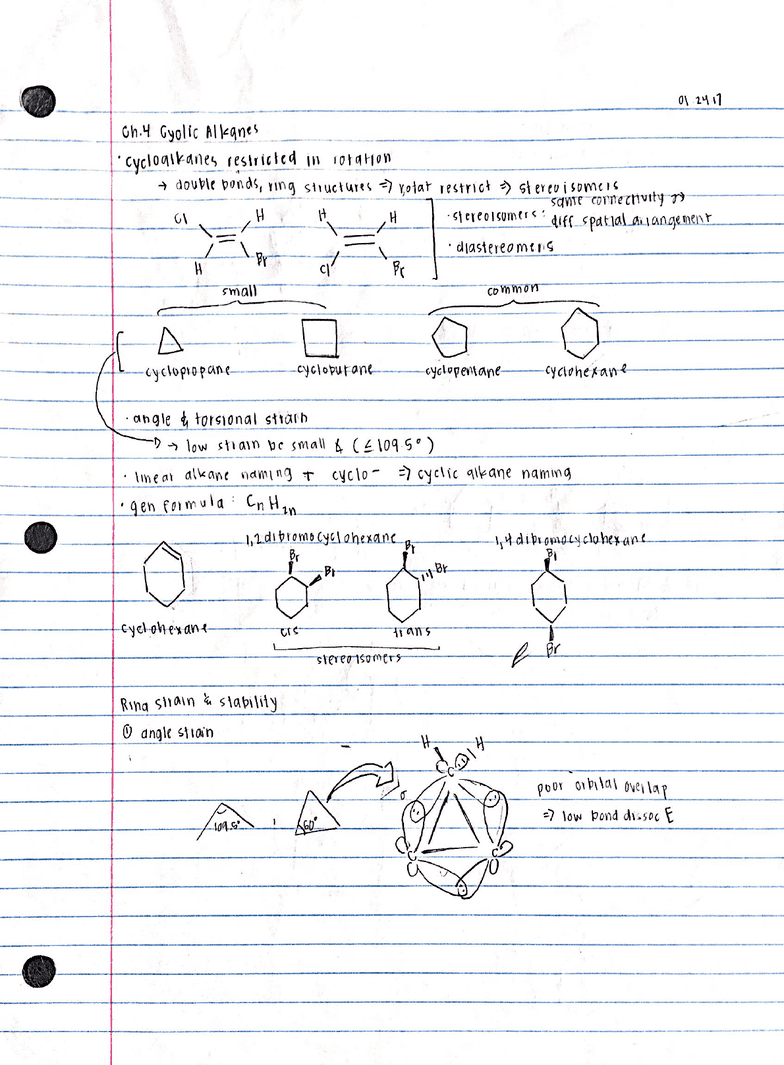 01 24 17
Ch.4 Cyclic Alkanes
· cycloalkanes restricted in rotation
→ double bonds, ring structures ⇒ rotat restrict ⇒ stereoisomers
Cl H H H
H Br Cl Br
· stereoisomers: same connectivity
diff spatial arrangement
· diastereomers
small common
cyclopropane cyclobutane cyclopentane cyclohexane
· angle & torsional strain
→ low strain bc small & (≤109.5°)
· linear alkane naming + cyclo- ⇒ cyclic alkane naming
· gen formula: CnH2n
1,2 dibromocyclohexane 1,4 dibromocyclohexane
Br Br Br Br Br
cyclohexane cis trans Br
stereoisomers
Ring strain & stability
① angle strain
H H
C
σ
109.5° 60°
C C
poor orbital overlap
⇒ low bond dissoc E